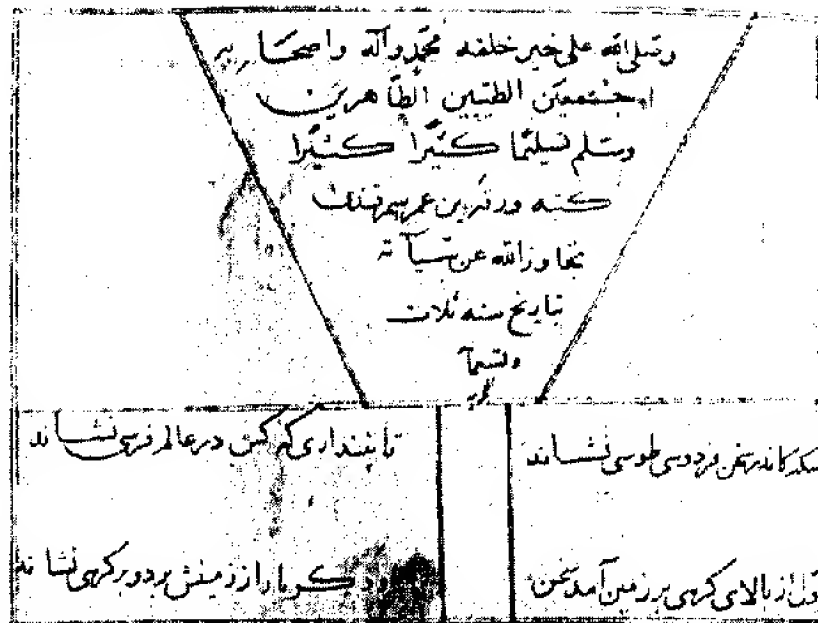 وصلی الله علی خیر خلقه محمد وآله واصحابه
اجمعین الطیبین الطاهرین
وسلم تسلیما کثیرا کثیرا
کتبه ورقه بن عمر سمرقندی
تجاوز الله عن سیآته
بتاریخ سنه ثلاث
وتسعمآ
سکه کاندر سخن فردوسی طوسی نشاند
تا نپنداری که کس در عالم فرسی نشاند
اول از بالای کرسی بر زمین آمد سخن
او دکر بار از زمینش برد و بر کرسی نشاند